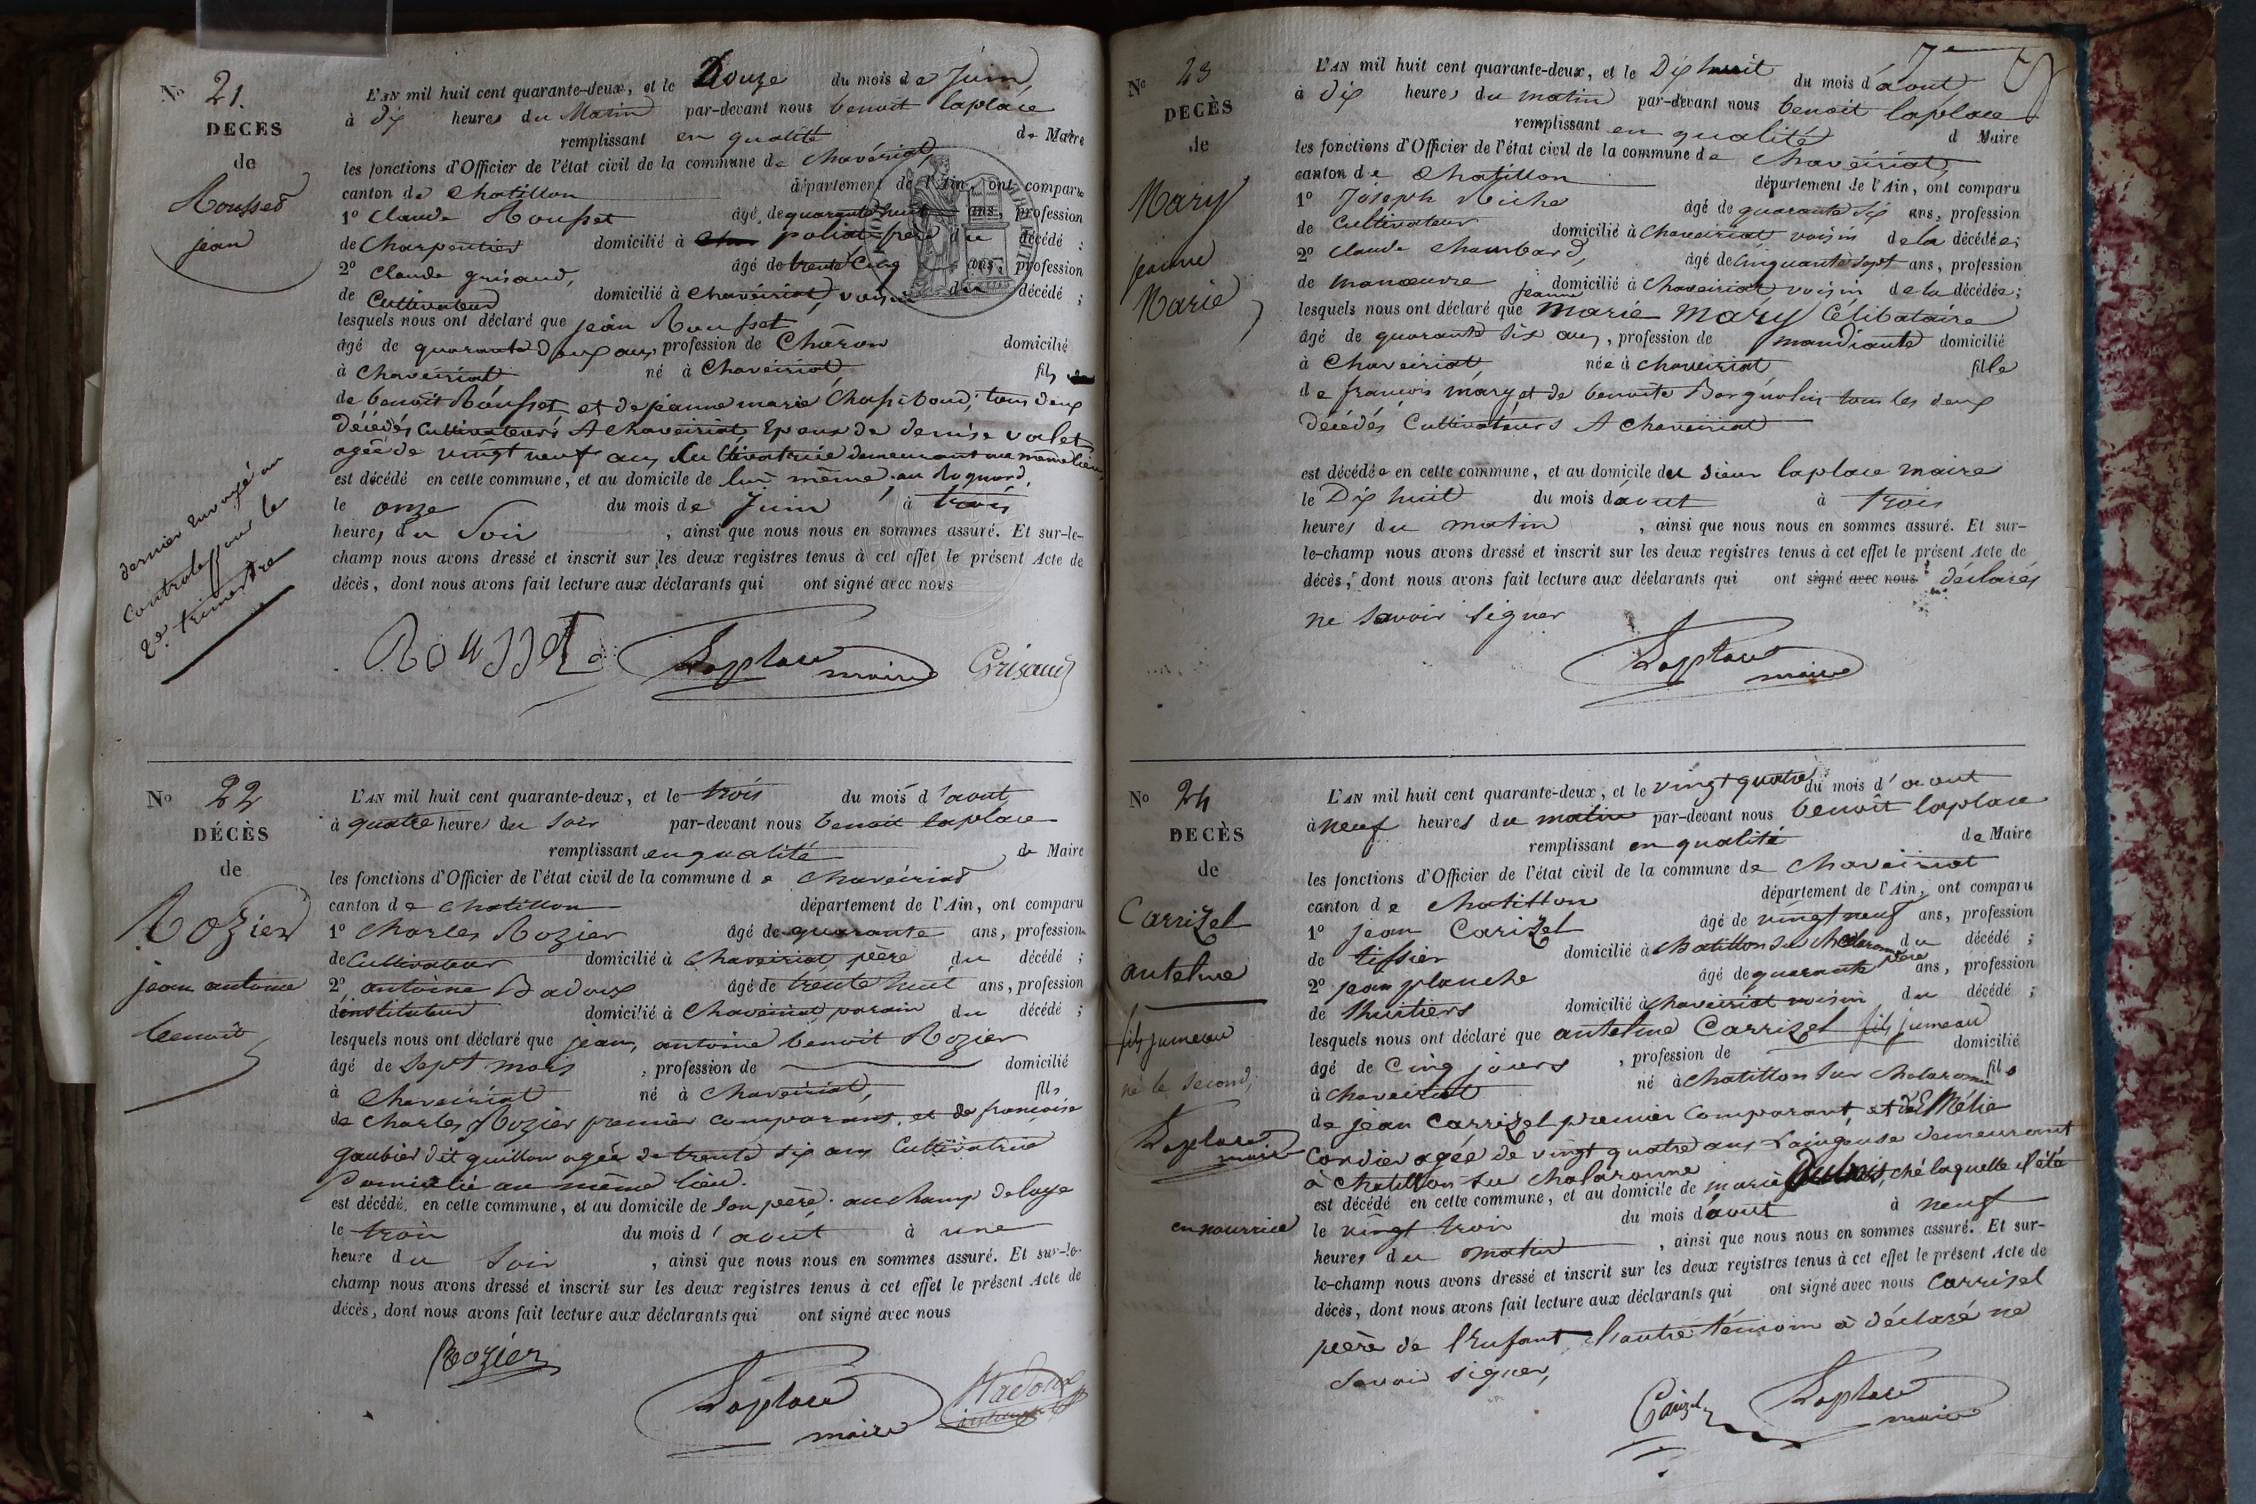 No 21.
DECÈS
de
Rousset
jean
L'AN mil huit cent quarante-deux, et le Douze du mois de Juin
à dix heures du Matin par-devant nous benoit laplace
remplissant en qualité de Maire
les fonctions d'Officier de l'état civil de la commune de chavéiriat,
canton de chatillon département de l'Ain, ont comparu
1º Claude Rousset âgé de quarante huit ans, profession
de Charpentier domicilié à poliat frère du décédé ;
2º Claude grisaud, âgé de trente Cinq ans, profession
de Cultivateur domicilié à chavéiriat, voisin du décédé ;
lesquels nous ont déclaré que jean Rousset
âgé de quarante Deux ans, profession de Charon domicilié
à Chaveiriat né à Chaveiriat fils
de benoit Rousset et de jeanne marie tous deux
décédés Cultivateurs A chaveiriat Epoux de denise volet
agée de vingt neuf ans Cultivatrice demeurant au même lieu
est décédé en cette commune, et au domicile de lui même au
le onze du mois de Juin à trois
heures du Soir , ainsi que nous nous en sommes assuré. Et sur-le-
champ nous avons dressé et inscrit sur les deux registres tenus à cet effet le présent Acte de
décès, dont nous avons fait lecture aux déclarants qui ont signé avec nous
dernier envoyé au
controle pour le
2e trimestre
Rousset Laplace maire Grisaud
No 22
DÉCÈS
de
Rozier
jean antoine
benoit
L'AN mil huit cent quarante-deux, et le trois du mois d'aout
à quatre heures du Soir par-devant nous benoit laplace
remplissant en qualité de Maire
les fonctions d'Officier de l'état civil de la commune de chaveiriat
canton de chatillon département de l'Ain, ont comparu
1º Charles Rozier âgé de quarante ans, profession
de Cultivateur domicilié à Chaveiriat père du décédé ;
2º antoine Badoux âgé de trente huit ans, profession
d'instituteur domicilié à Chaveiriat parain du décédé ;
lesquels nous ont déclaré que jean, antoine benoit Rozier
âgé de Sept mois , profession de domicilié
à Chaveiriat né à Chaveiriat, fils
de Charles Rozier premier comparant, et de françoise
gaubier dit guillon agée de trente six ans Cultivatrice
Domicilié au même lieu.
est décédé en cette commune, et au domicile de Son père. au champ delaye
le trois du mois d'aout à une
heure du Soir , ainsi que nous nous en sommes assuré. Et sur-le-
champ nous avons dressé et inscrit sur les deux registres tenus à cet effet le présent Acte de
décès, dont nous avons fait lecture aux déclarants qui ont signé avec nous
Rozier
Laplace maire
No 23
DECÈS
de
Mary
jeanne
Marie
7e
L'AN mil huit cent quarante-deux, et le Dix huit du mois d'aout
à dix heures du matin par-devant nous benoit laplace
remplissant en qualité d Maire
les fonctions d'Officier de l'état civil de la commune de Chaveiriat,
canton de chatillon département de l'Ain, ont comparu
1º Joseph Riche âgé de quarante Six ans, profession
de Cultivateur domicilié à Chaveiriat voisin de la décédée;
2º Claude Chambard, âgé de Cinquante Sept ans, profession
de manœuvre domicilié à Chaveiriat voisin de la décédée;
lesquels nous ont déclaré que jeanne Marie Mary Célibataire
âgé de quarante Six ans, profession de mandiante domicilié
à Chaveiriat née à chaveiriat fille
de francois mary et de benoite tous les deux
Décédés Cultivateurs A chaveiriat
est décédée en cette commune, et au domicile du Sieur laplace maire
le Dix huit du mois d'aout à trois
heures du matin , ainsi que nous nous en sommes assuré. Et sur-
le-champ nous avons dressé et inscrit sur les deux registres tenus à cet effet le présent Acte de
décès, dont nous avons fait lecture aux déclarants qui ont signé avec nous déclarés
ne Savoir Signer
Laplace maire
No 24
DECÈS
de
Carrizel
antelme
fils jumeau
né le Second,
Laplace maire
en nourrice
L'AN mil huit cent quarante-deux, et le vingt quatre du mois d'aout
à neuf heures du matin par-devant nous benoit laplace
remplissant en qualité de Maire
les fonctions d'Officier de l'état civil de la commune de Chaveiriat
canton de chatillon département de l'Ain, ont comparu
1º jean Carizel âgé de vingt neuf ans, profession
de tissier domicilié à chatillon Sur chalaronne père du décédé ;
2º jean planche âgé de quarante ans, profession
de domicilié à Chaveiriat voisin du décédé ;
lesquels nous ont déclaré que antelme Carrizel fils jumeau
âgé de Cinq jours , profession de domicilié
à chaveiriat né à Chatillon Sur Chalaronne fils
de jean Carrizel premier Comparant, et de Mélie
Cordier agée de vingt quatre ans demeurant
à chatillon Sur chalaronne
est décédé en cette commune, et au domicile de marie Dubois, ché laquelle il été
le vingt trois du mois d'aout à neuf
heures du matin , ainsi que nous nous en sommes assuré. Et sur-
le-champ nous avons dressé et inscrit sur les deux registres tenus à cet effet le présent Acte de
décès, dont nous avons fait lecture aux déclarants qui ont signé avec nous Carrizel
père de l'Enfant, l'autre témoin à déclaré ne
Savoir Signer,
Carizel Laplace maire